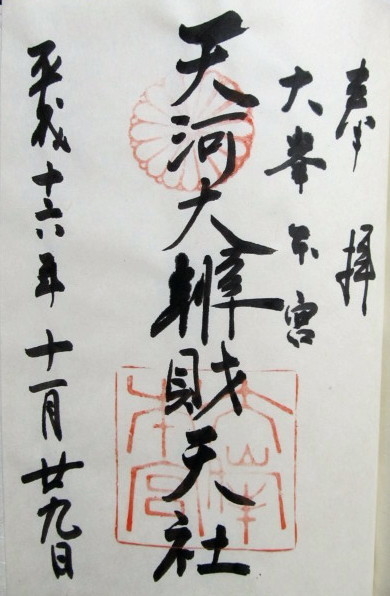 奉拝
大峯本宮
天河大辨財天社
平成十六年十一月廿九日
大峯本宮